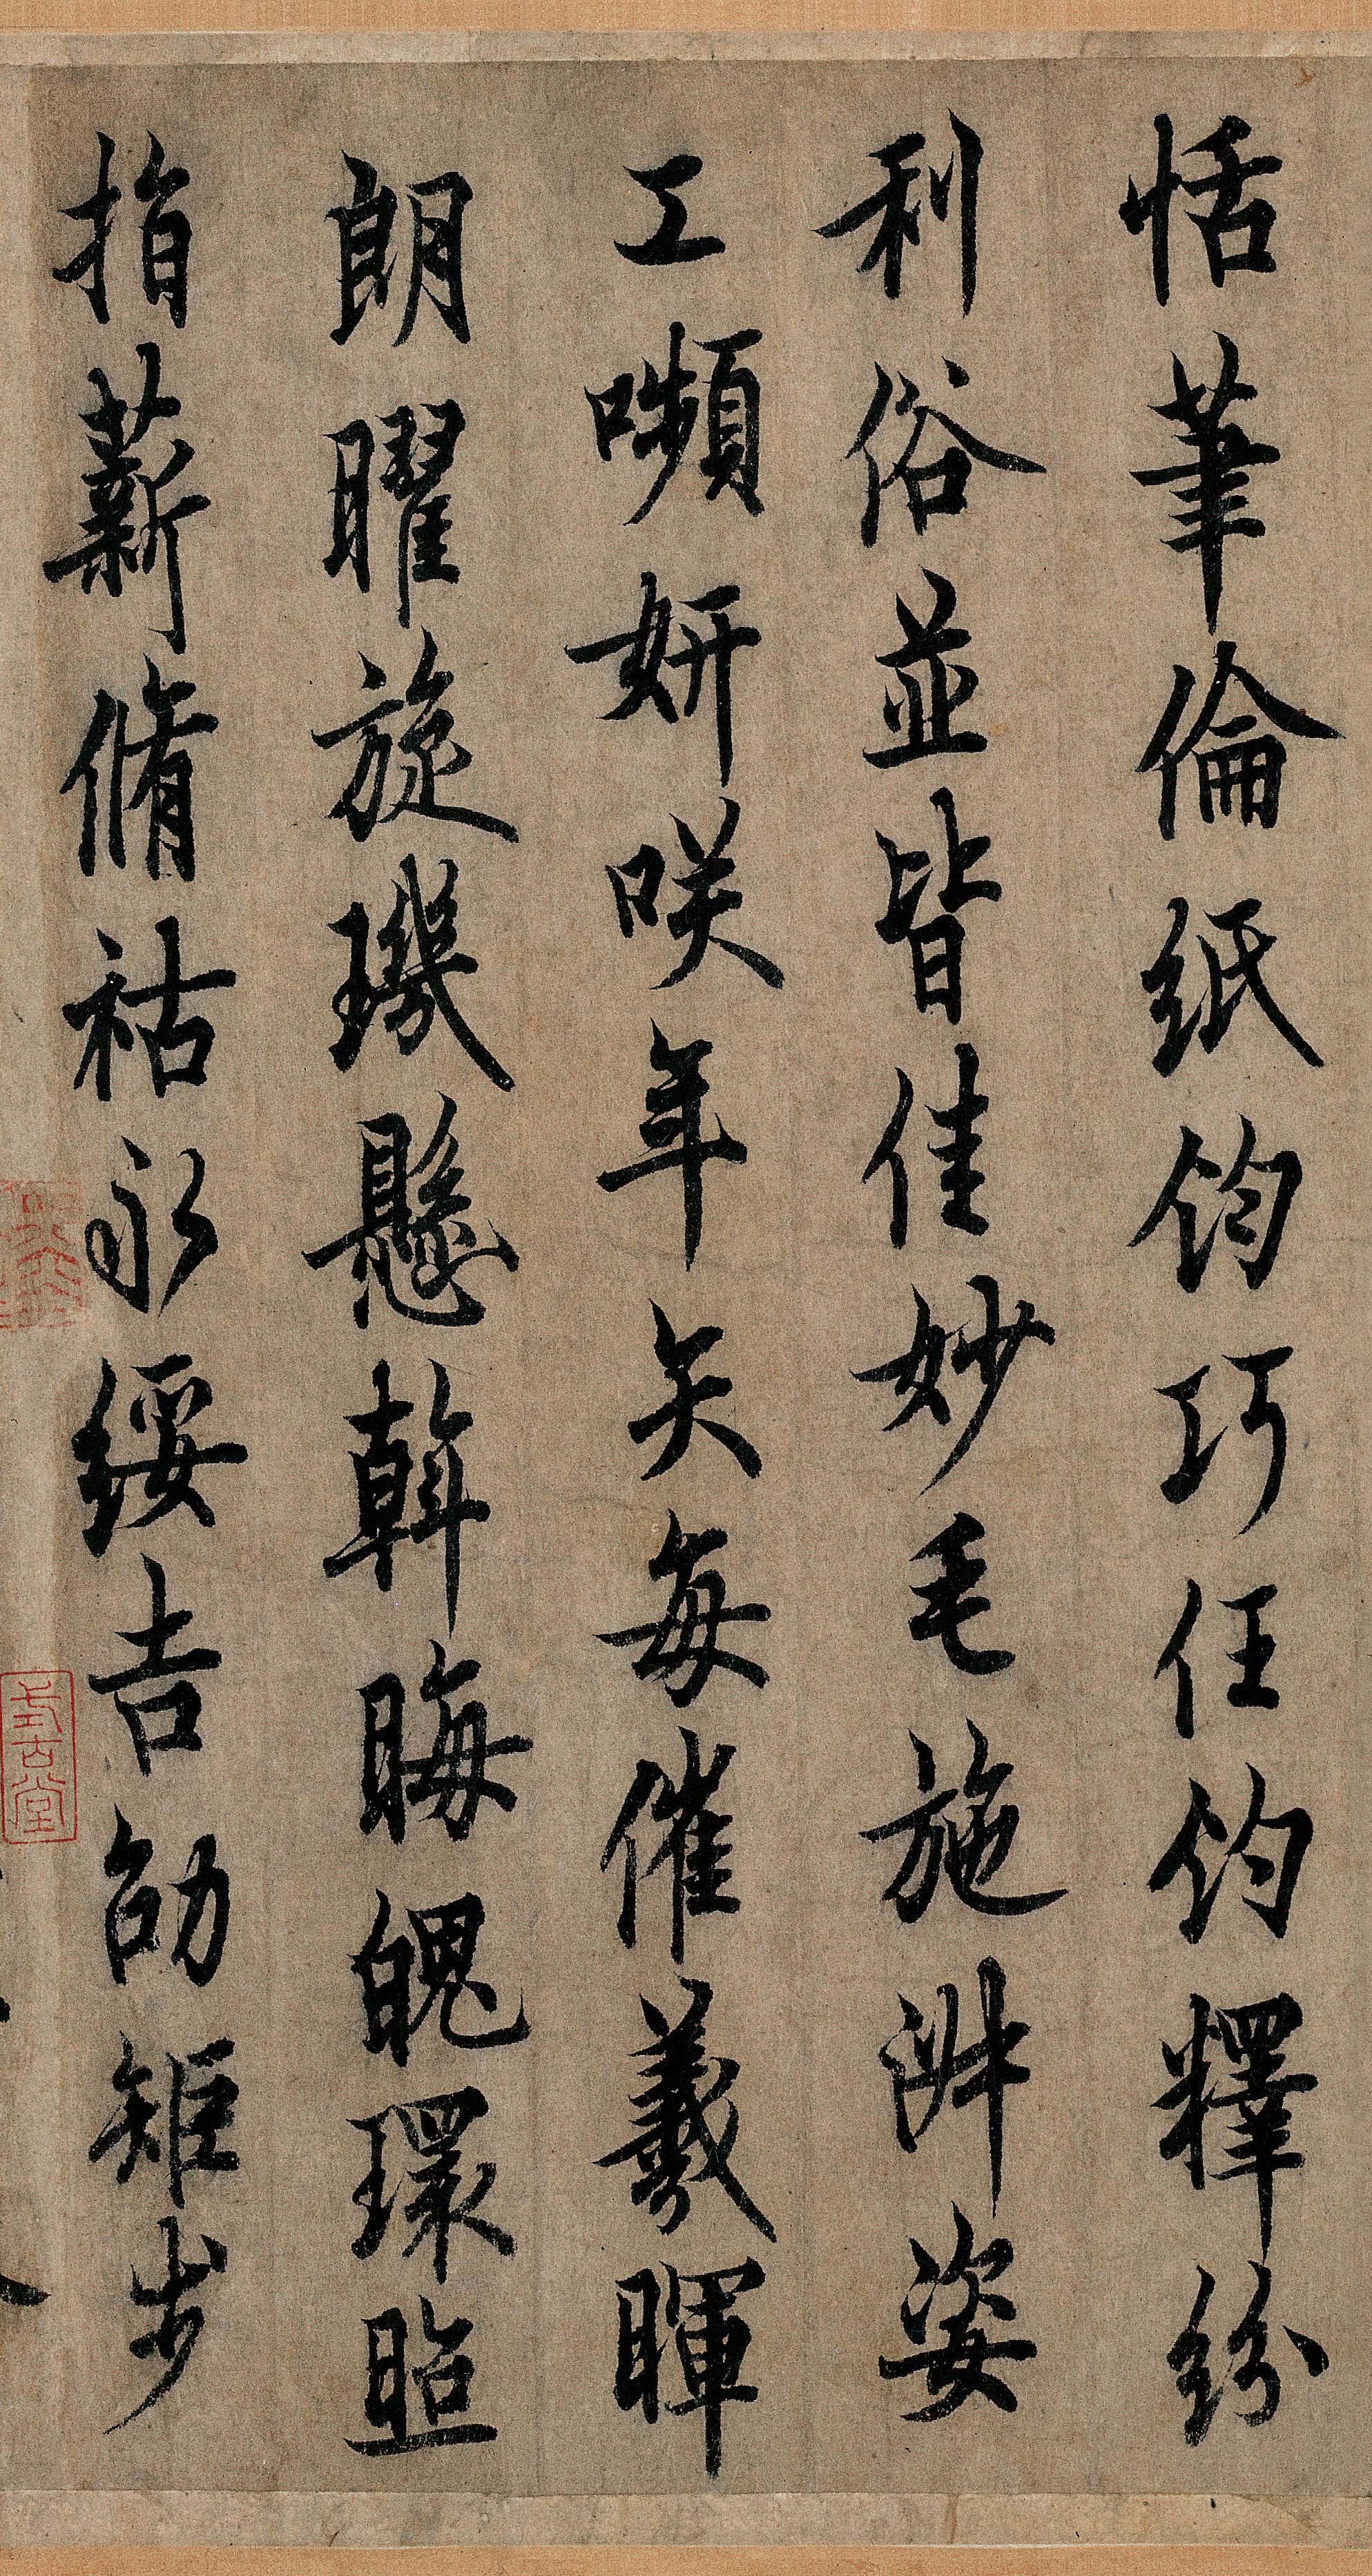 恬筆倫紙鈞巧任鈞釋紛
利俗並皆佳妙毛施淑姿
工嚬妍咲年矢每催羲暉
朗曜旋璣懸斡晦魄環照
指薪脩祜永綏吉劭矩步
式古堂